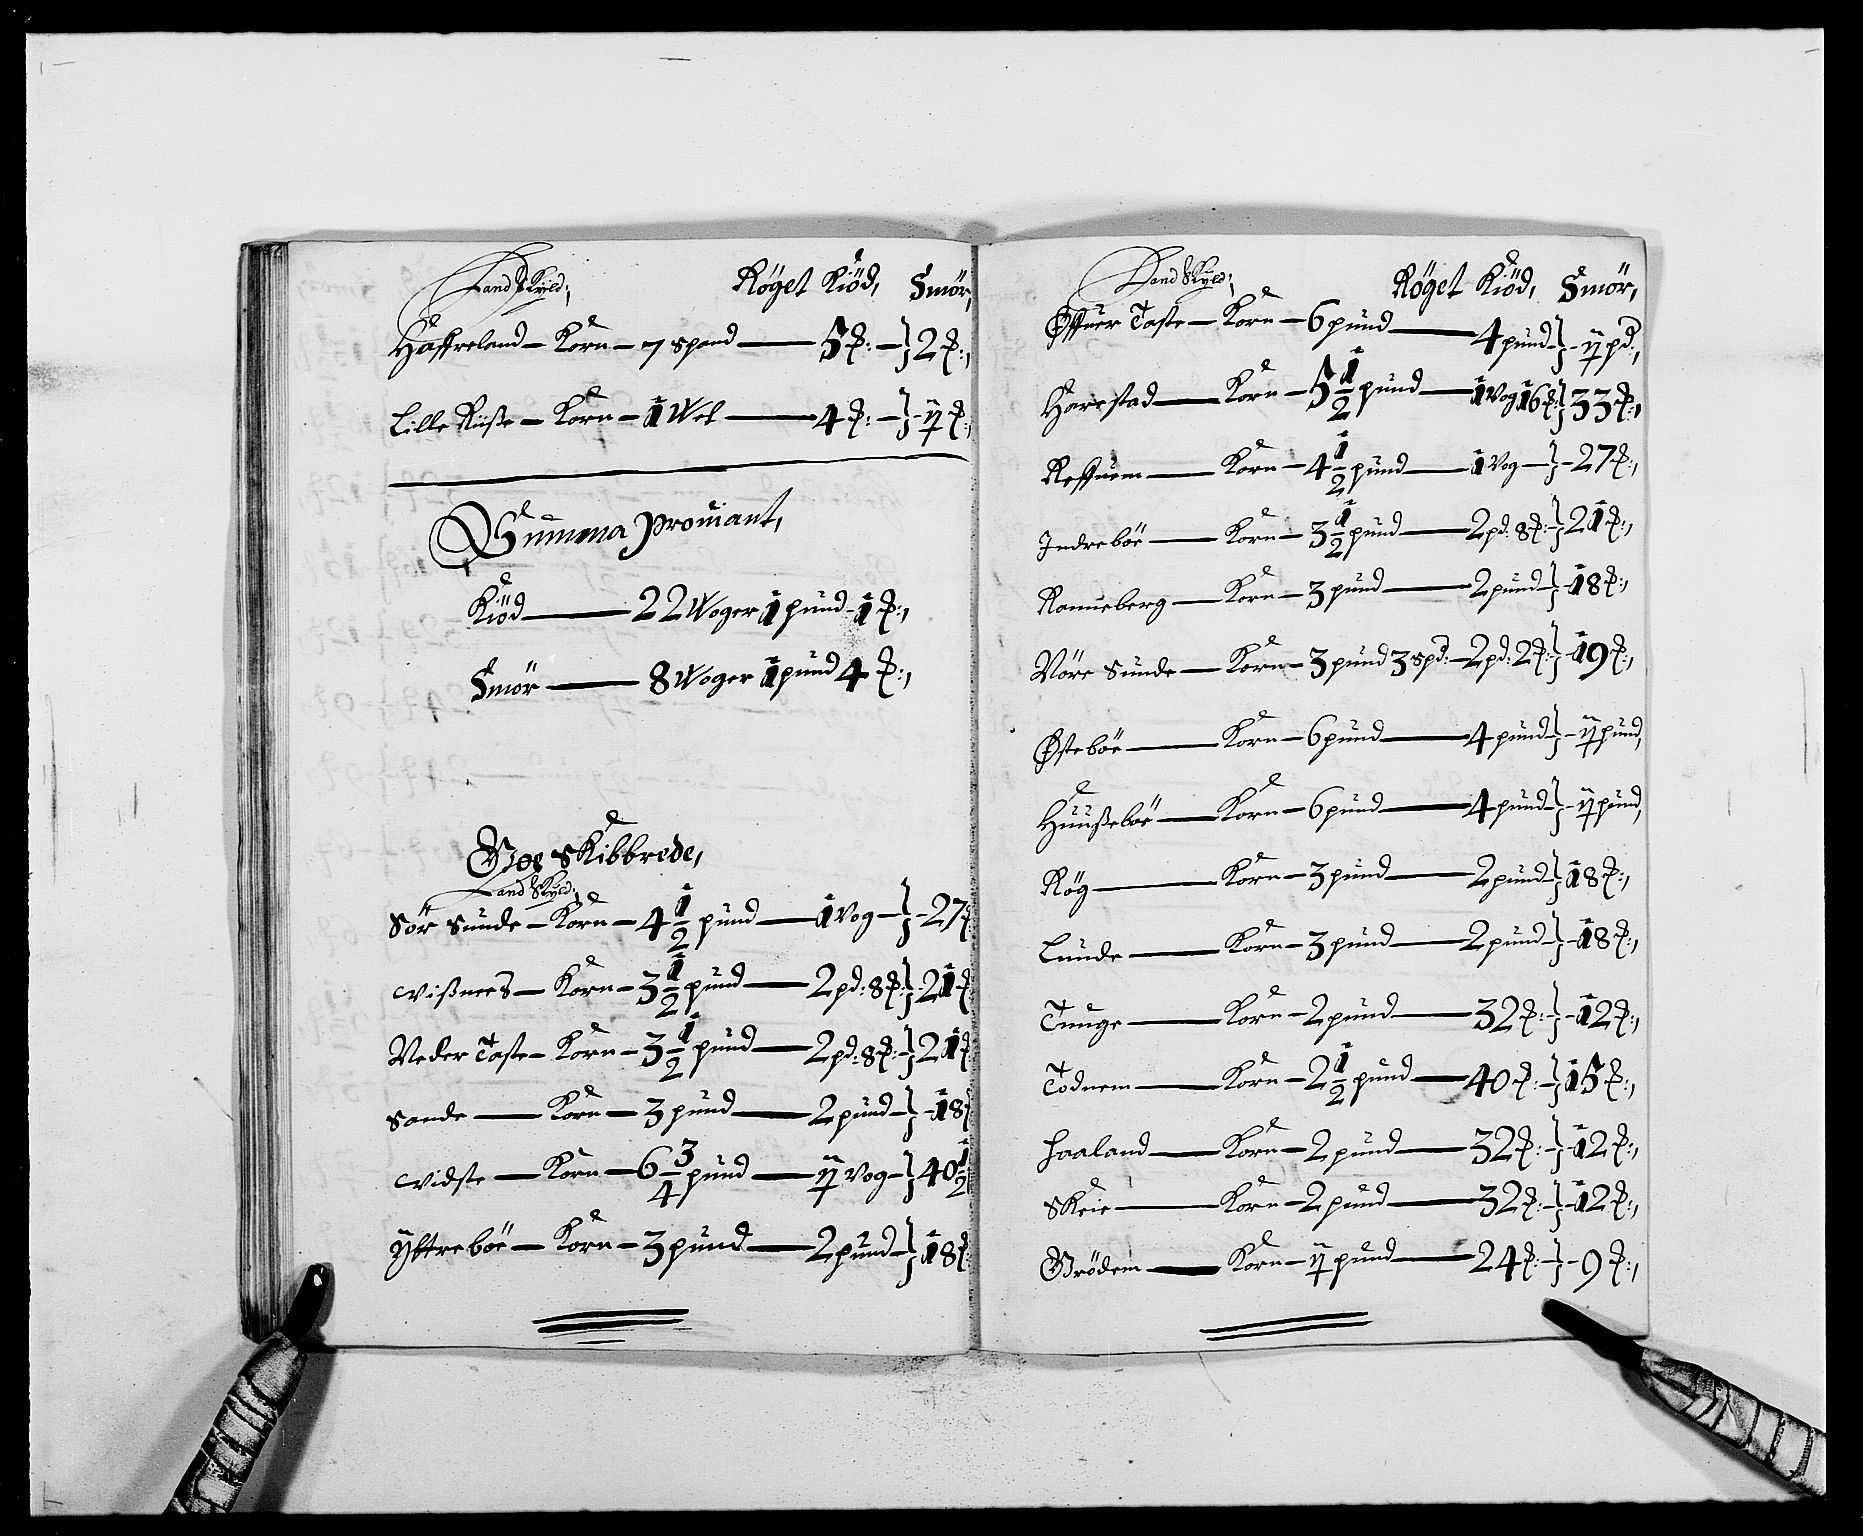 Land Skyld; Röget Kiöd, Smör,
Haffreland — Korn — 7 spand — 5 ℔: — } 2 ℔:,
Lille Riiße — Korn — 1 Wet — 4 ℔: — } - ij ℔:,
Summa Proviant,
Kiöd — 22 Woger 1 pund - 1 ℔:,
Smör — 8 Woger 1 pund 4 ℔:,
Goe Skibbrede,
Land Skyld;
Sör Sunde — Korn — 4 1/2 pund — 1 Vog — } - 27 ℔
Wißnees — Korn — 3 1/2 pund — 2 pd: 8 ℔: } 21 ℔
Neder Taste — Korn — 3 1/2 pund — 2 pd: 8 ℔: } 21 ℔
Sande — Korn — 3 pund — 2 pund — } - 18 ℔
Widste — Korn — 6 3/4 pund — ij Vog — } 40 1/2
Yttreböe — Korn — 3 pund — 2 pund — } 18 ℔:
Land Skyld; Röget Kiöd, Smör,
Offuer Taste — Korn — 6 pund — 4 pund } - ij pd:,
Harestad — Korn — 5 1/2 pund — 1 Vog 16 ℔: } 33 ℔:,
Reffnem — Korn — 4 1/2 pund — 1 Vog — } - 27 ℔:,
Indreböe — Korn — 3 1/2 pund — 2 pd: 8 ℔: } 21 ℔:,
Ranneberg — Korn — 3 pund — 2 pund } - 18 ℔:,
Nöre Sunde — Korn — 3 pund 3 spd: — 2 pd: 2 ℔: } - 19 ℔:,
Östeböe — Korn — 6 pund — 4 pund } - ij pund,
Huußeböe — Korn — 6 pund — 4 pund } - ij pund,
Rög — Korn — 3 pund — 2 pund } 18 ℔:,
Lunde — Korn — 3 pund — 2 pund } - 18 ℔:,
Tunge — Korn — 2 pund — 32 ℔: } - 12 ℔:,
Todnem — Korn — 2 1/2 pund — 40 ℔: } 15 ℔:,
Haaland — Korn — 2 pund — 32 ℔: } - 12 ℔:,
Skeie — Korn — 2 pund — 32 ℔: } - 12 ℔:,
Grödem — Korn — ij pund — 24 ℔: } - 9 ℔:,